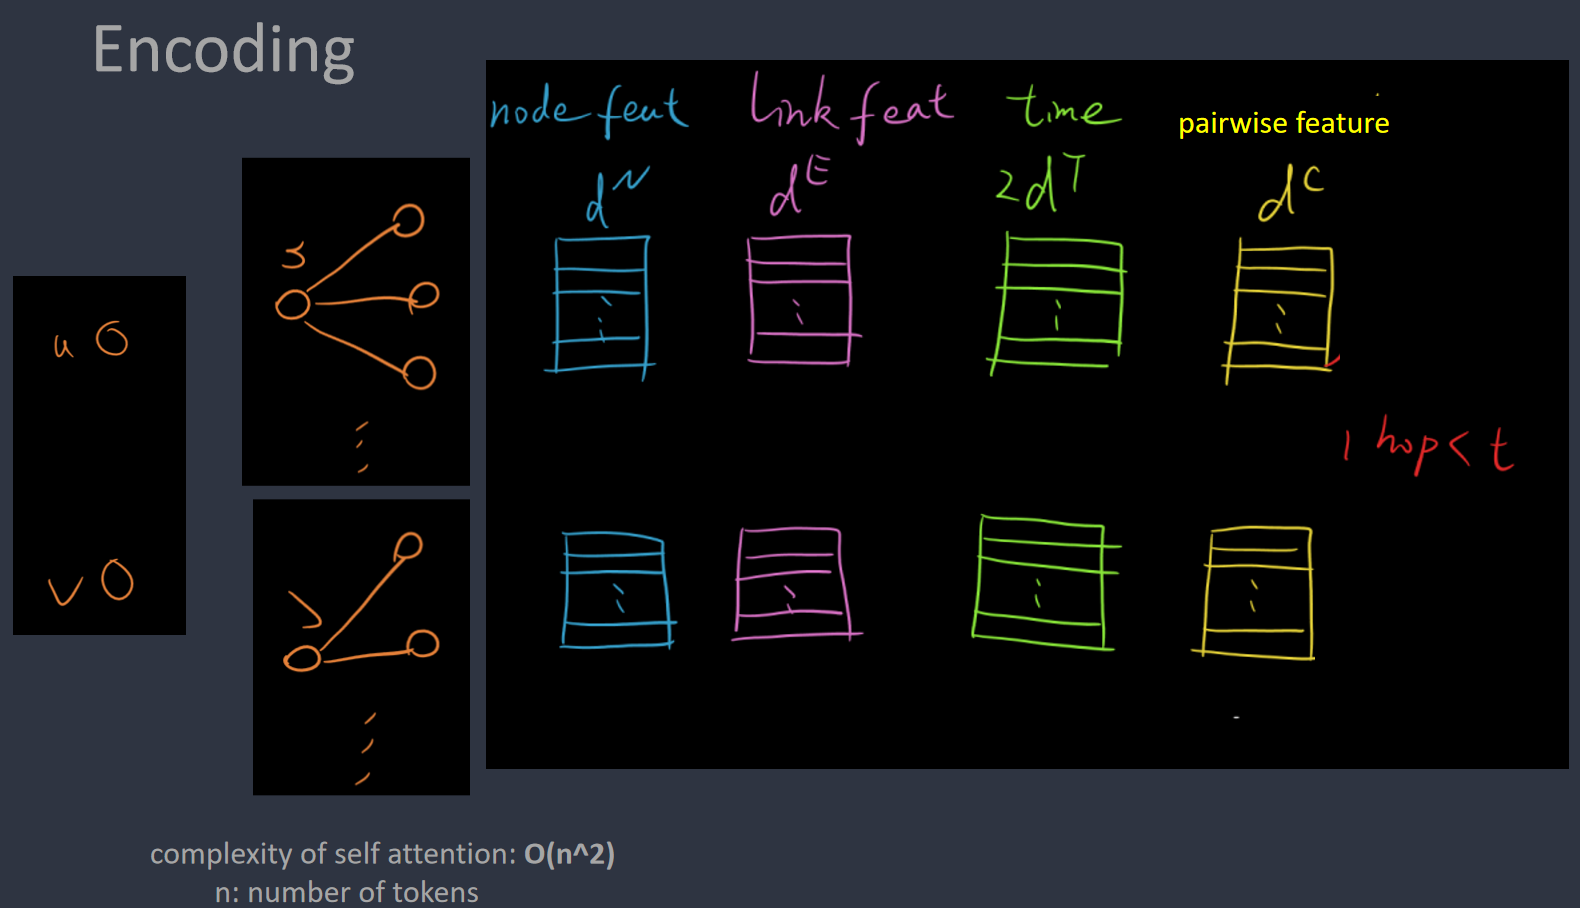 Encoding
node feat link feat time pairwise feature
d^N d^E 2d^T d^C
u
u
1 hop < t
v
v
complexity of self attention: O(n^2)
n: number of tokens